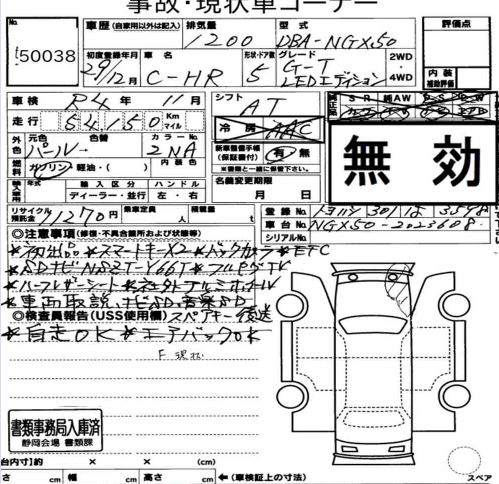 事故・現状車コーナー
No.
50038
車歴（自家用以外は記入）
排気量
1200
型式
DBA-NGX50
評価点
初度登録年月
29/12月
車名
C-HR
形状・ドア数
5
グレード
G-T
LEDエディション
2WD
4WD
内装
補助評価
車検 R4年 11月
走行 54150 Km
マイル
シフト
AT
冷房 AAC
SR 純AW PS PW
無効
外色
元色
パール
色替
カラーNo.
2NA
燃料
ガソリン・軽油・( )
内装色
新車整備手帳
(保証書付)
有・無
*書類と一緒に保管して下さい。
輸入車用
年式
輸入区分
ディーラー・並行
ハンドル
左・右
名義変更期限
月 日
リサイクル
預託金
11270円
乗車定員
人
積載量
t
登録No. トヨハシ 301 は 3598
車台No. NGX50-2023608
シリアルNo.
◎注意事項（修復・不具合箇所および状態等）
*初出品 *スマートキーX2 *バックカメラ *ETC
*SDナビNSZT-Y66T *フルセグTV
*ハーフレザーシート *社外アルミホイール
*車両取説、ナビSD、音楽SD
◎検査員報告（USS使用欄）スペアキー後送
*自走OK *エアバックOK
F現状
書類事務局入庫済
静岡会場 書類課
台内寸）約 × × (cm)
さ cm 幅 cm 高さ cm ←（車検証上の寸法）
スペア